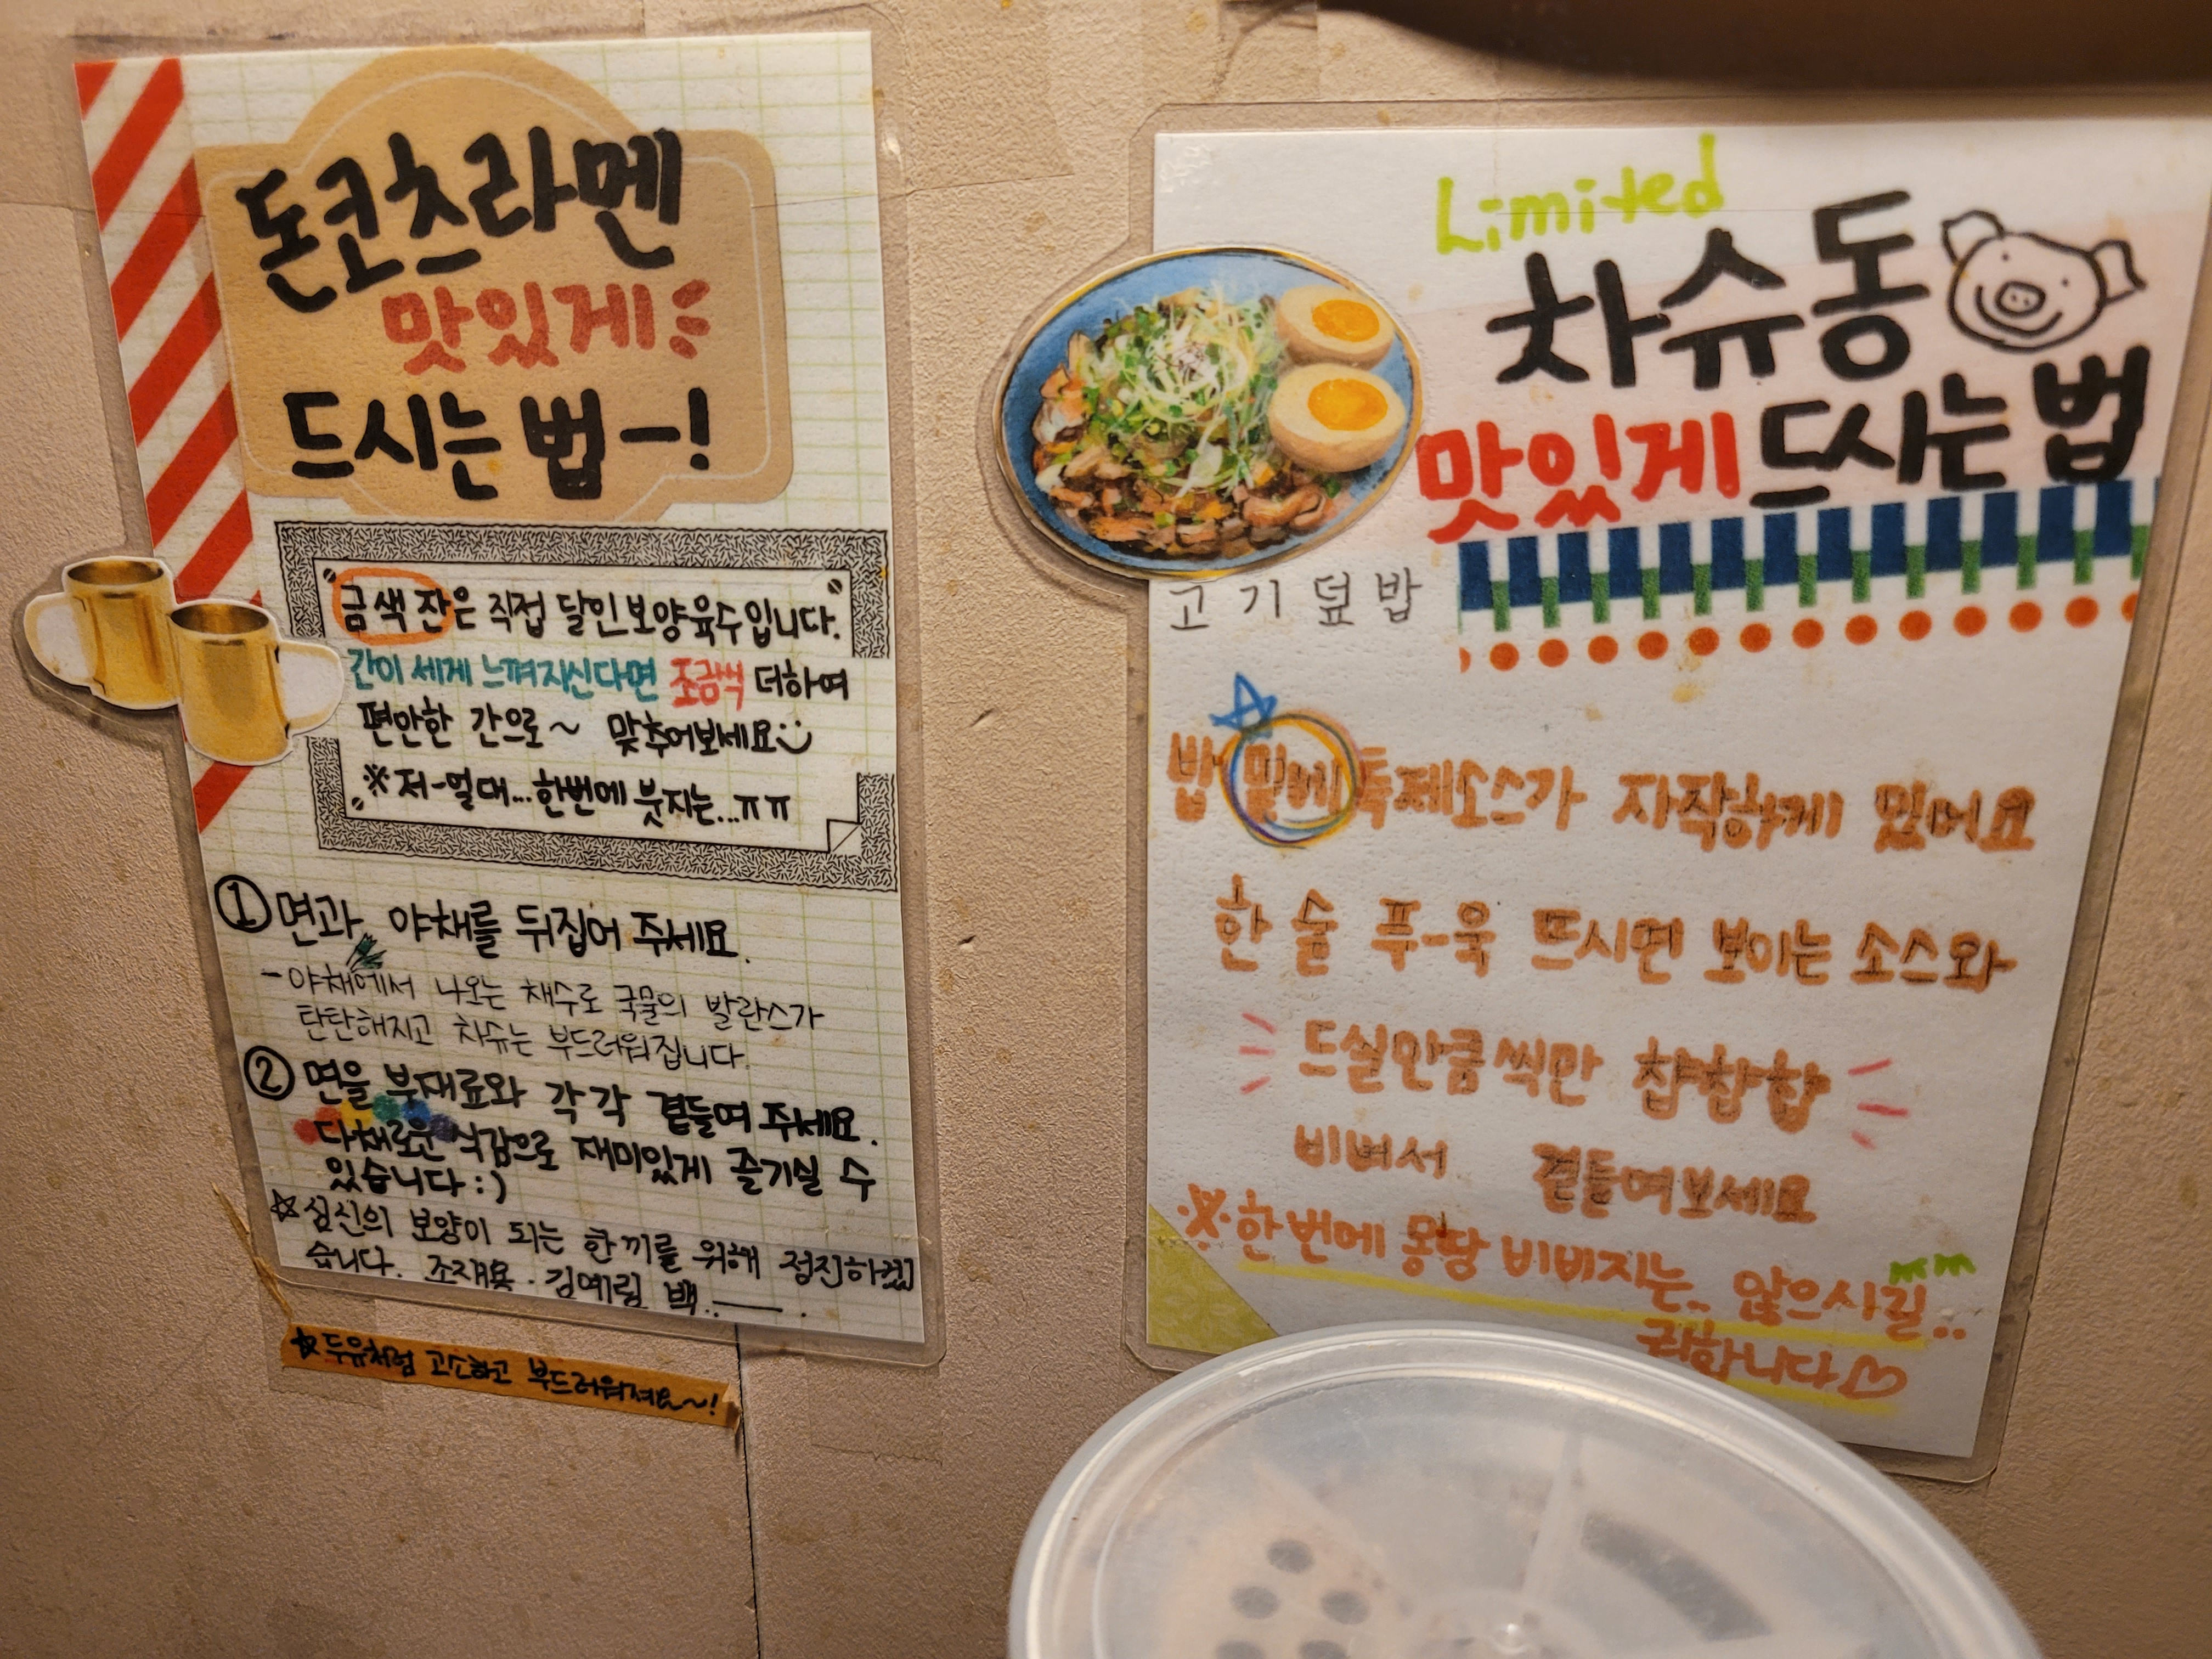 돈코츠라멘
맛있게
드시는 법-!
금색 잔은 직접 달인 보양육수입니다.
간이 세게 느껴지신다면 조금씩 더하여
편안한 간으로~ 맞추어보세요
※저-얼대...한번에 붓지는...ㅠㅠ
① 면과 야채를 뒤집어 주세요.
-야채에서 나오는 채수로 국물의 발란스가
탄탄해지고 차슈는 부드러워집니다.
② 면을 부재료와 각각 곁들여 주세요.
다채로운 식감으로 재미있게 즐기실 수
있습니다:)
☆심신의 보양이 되는 한끼를 위해 정진하겠
습니다. 조재용·김예림 백.
☆두유처럼 고소하고 부드러워져요~!
Limited
차슈동
맛있게드시는법
고기덮밥
밥 밑에 특제소스가 자작하게 있어요
한 술 푸-욱 뜨시면 보이는 소스와
드실만큼씩만 챱챱챱
비벼서 곁들여보세요
※한번에 몽땅 비비지는.. 않으시길..
권합니다♡